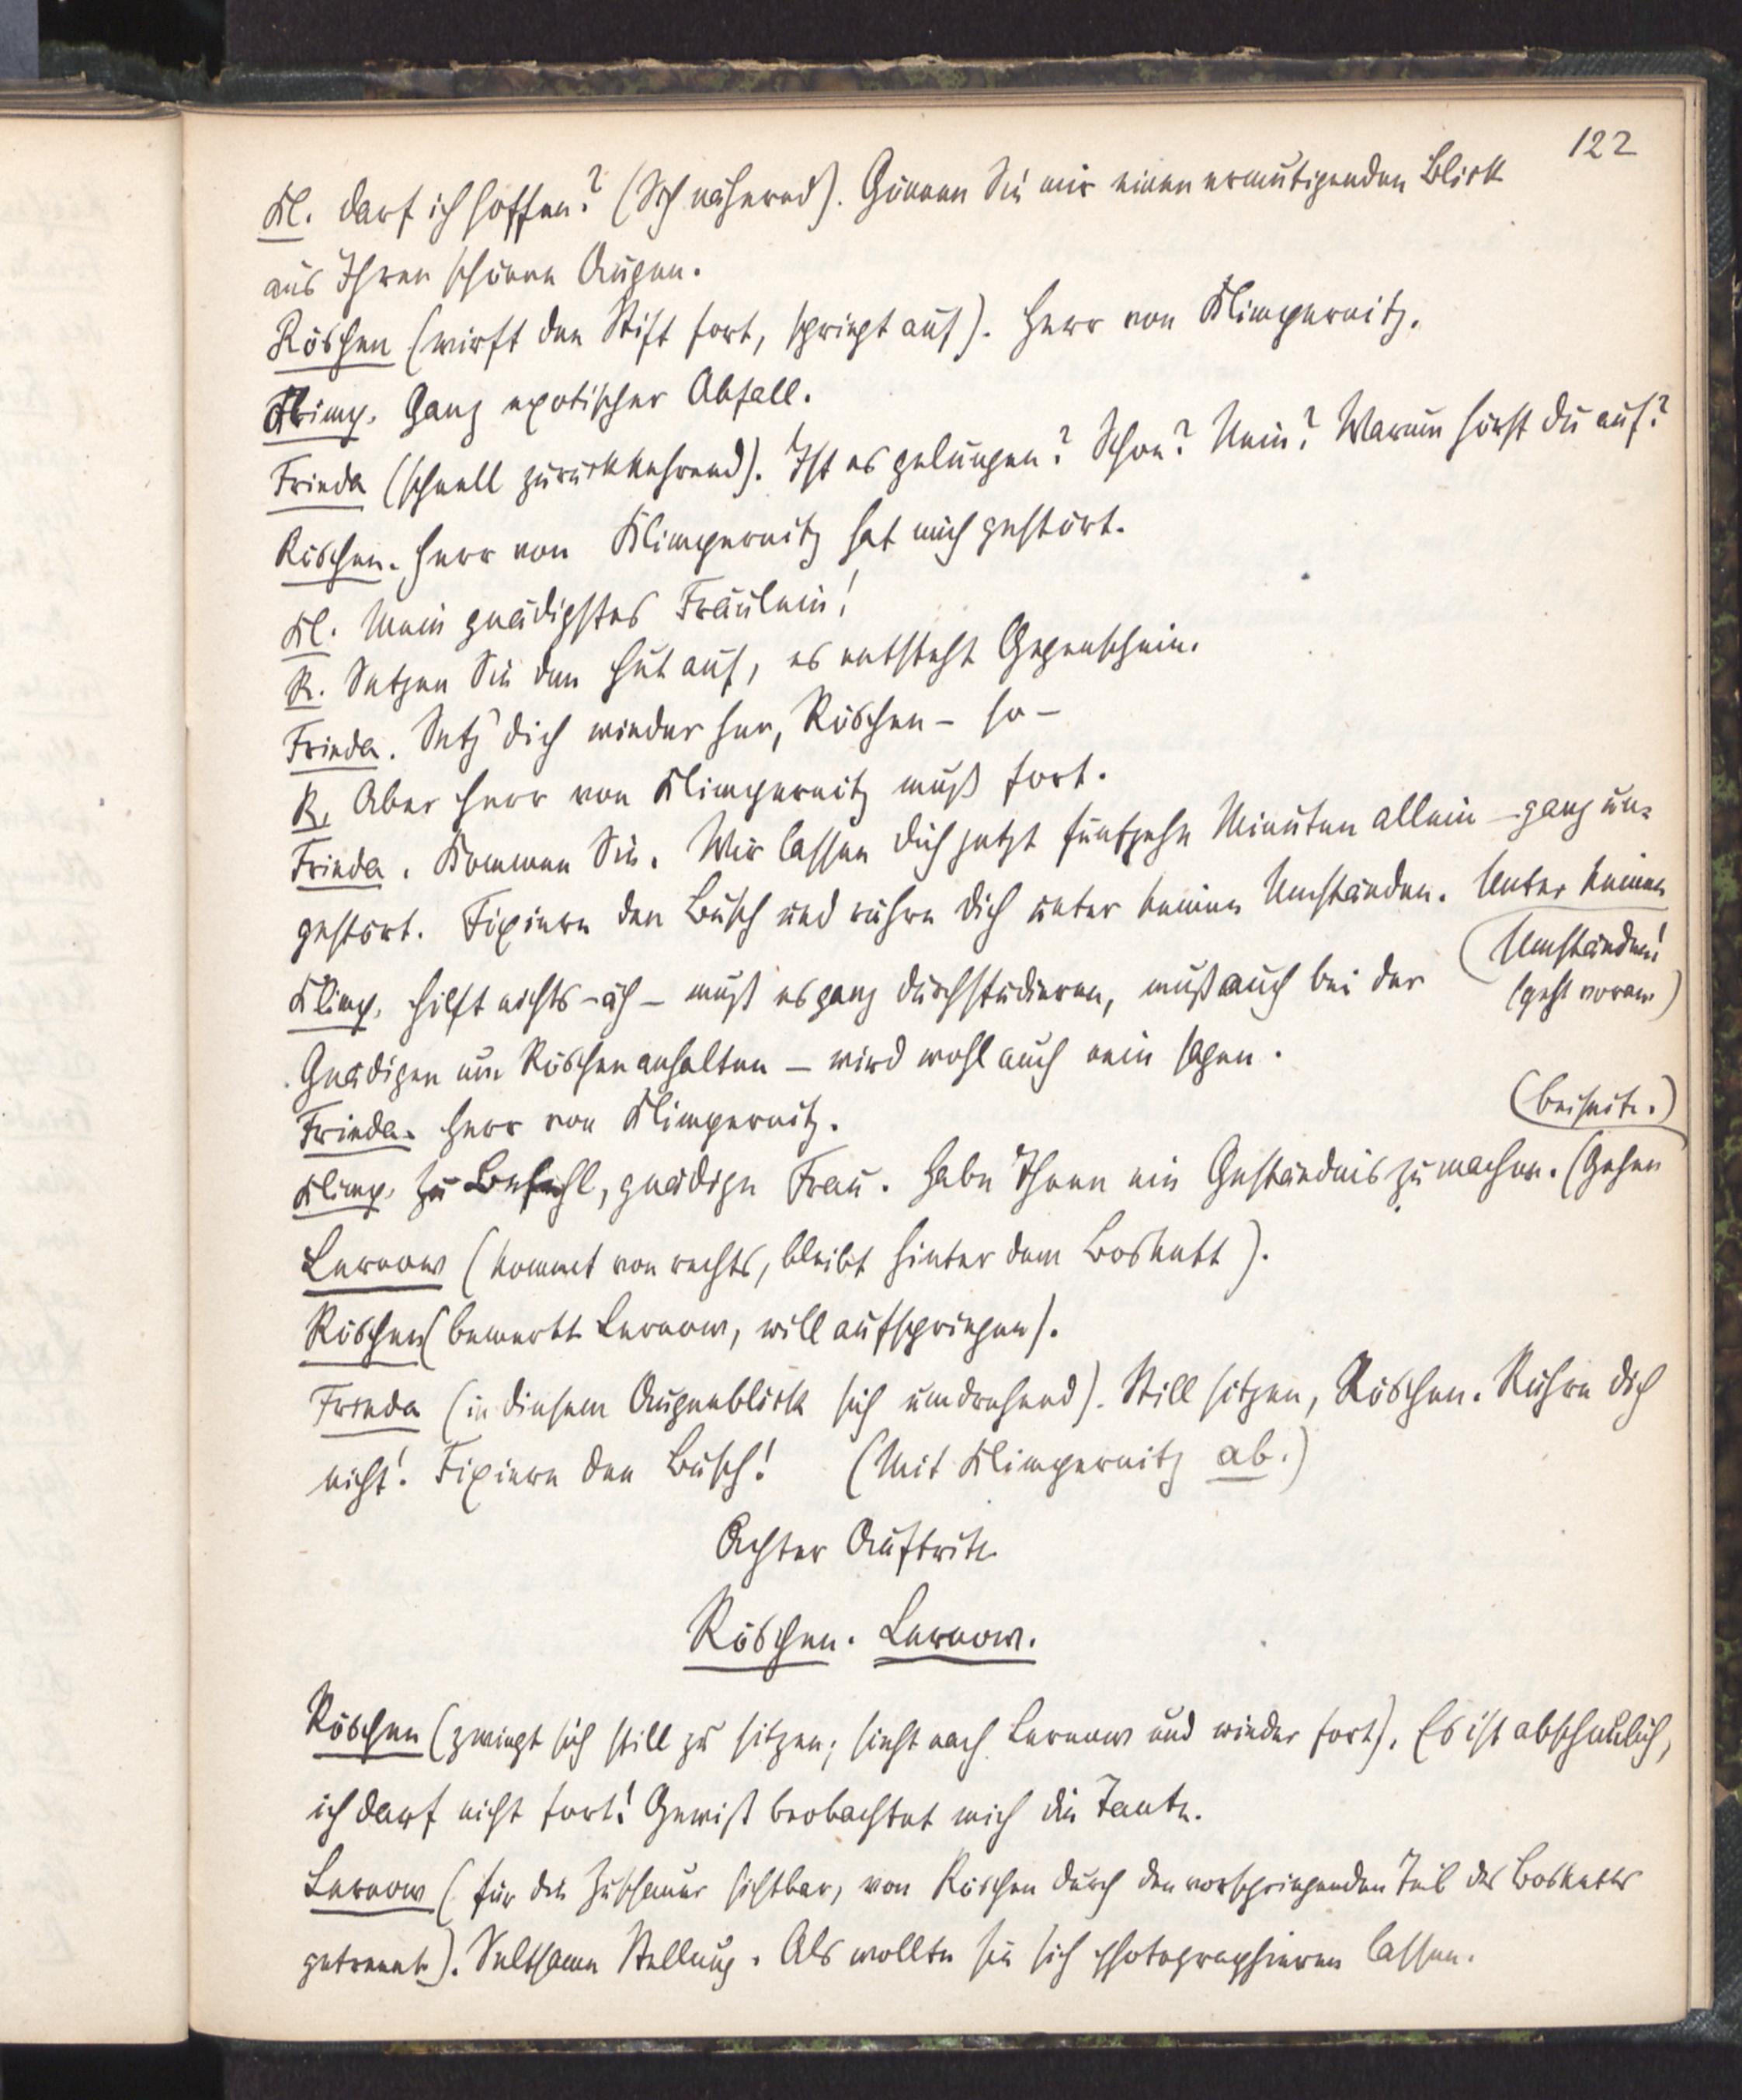 122
Kl. Darf ich hoffen? (Sich nähernd). Gönnen Sie mir einen ermutigenden Blick
aus Ihren schönen Augen.
Röschen (wirft den Stift fort, springt auf). Herr von Klimpernitz.
Klimp. Ganz exotischer Abfall.
Frieda (schnell zurückkehrend). Ist es gelungen? Schon? Nein? Warum hörst du auf?
Röschen. Herr von Klimpernitz hat mich gestört.
Kl. Mein gnädigstes Fräulein!
R. Setzen Sie den Hut auf, es entsteht Gegenschein.
Frieda. Setz' dich wieder her, Röschen – so –
R. Aber Herr von Klimpernitz muß fort.
Frieda. Kommen Sie. Wir lassen dich jetzt fünfzehn Minuten allein – ganz un-
gestört. Fixiere den Busch und rühre dich unter keinen Umständen. Unter keinen
Umständen!
(geht voran)
Klimp. Hilft nichts – äh – muß es ganz durchstudieren, muß auch bei der
Gnädigen um Röschen anhalten – wird wohl auch nein sagen.
(beiseite.)
Frieda. Herr von Klimpernitz.
Klimp. Zu Befehl, gnädige Frau. Habe Ihnen ein Geständnis zu machen. (Gehen
Lernow (kommt von rechts, bleibt hinter dem Boskett).
Röschen (bemerkt Lernow, will aufspringen).
Frieda (in diesem Augenblick sich umdrehend). Still sitzen, Röschen. Rühre dich
nicht! Fixiere den Busch! (Mit Klimpernitz ab.)
Achter Auftritt
Röschen. Lernow.
Röschen (zwingt sich still zu sitzen; sieht nach Lernow und wieder fort). Es ist abscheulich,
ich darf nicht fort! Gewiß beobachtet mich die Tante.
Lernow (für die Zuschauer sichtbar, von Röschen durch den vorspringenden Teil des Bosketts
getrennt). Seltsame Stellung. Als wollte sie sich photographieren lassen.